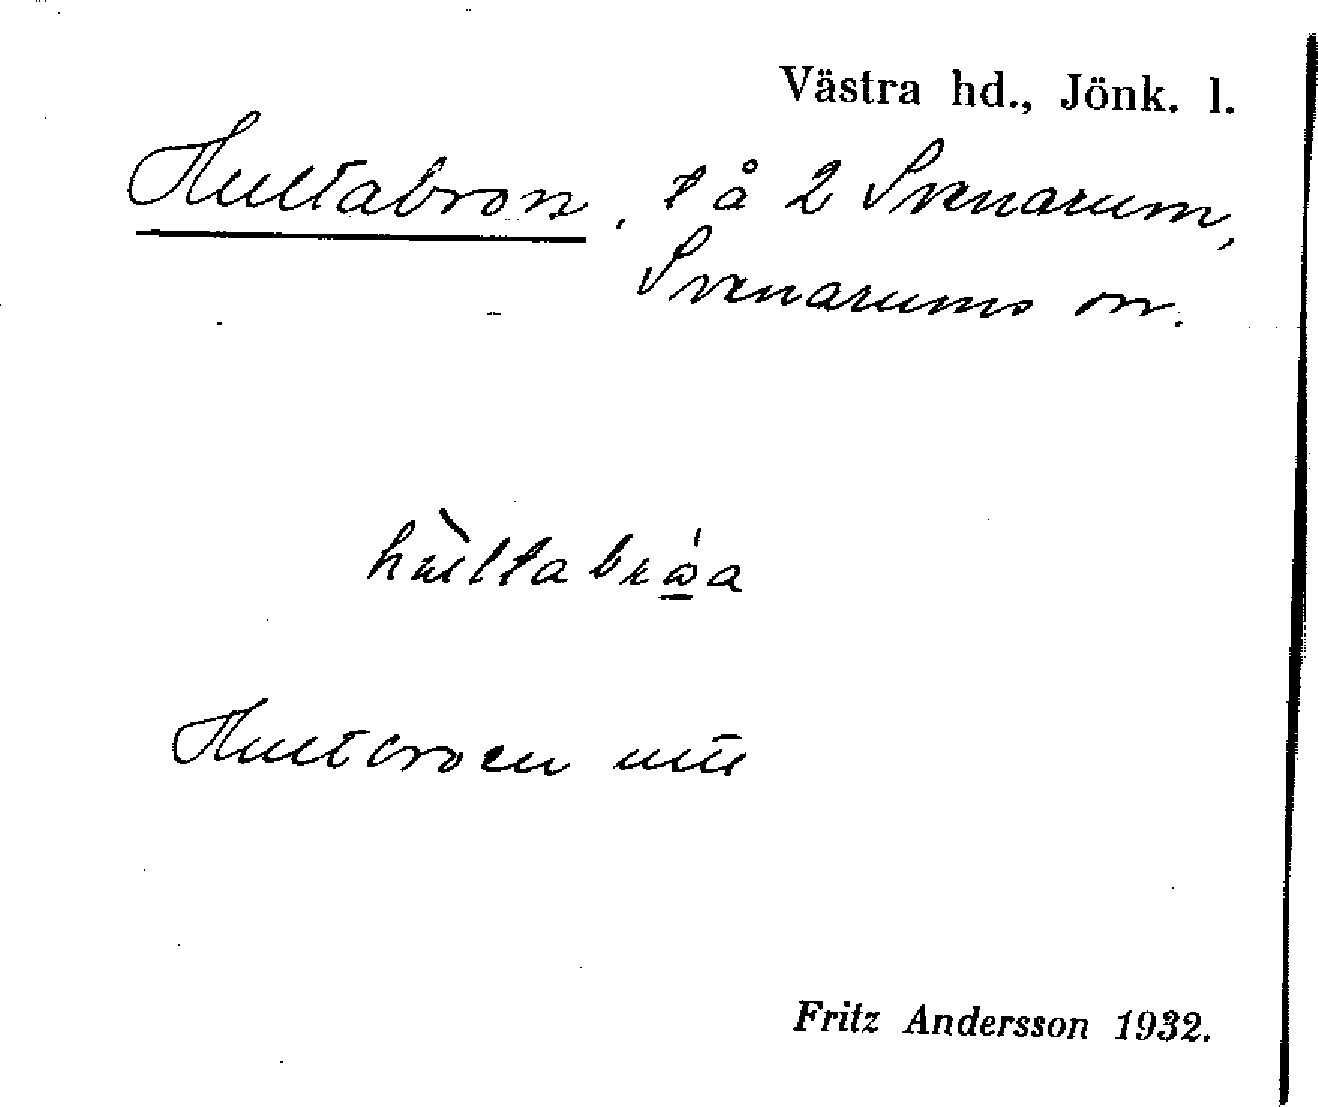 Västra hd., Jönk. l.
Hultabron, t å 2 Svenarum,
Svenarums sn.
hùltabrǫ́a
Hultbroen
Fritz Andersson 1932.